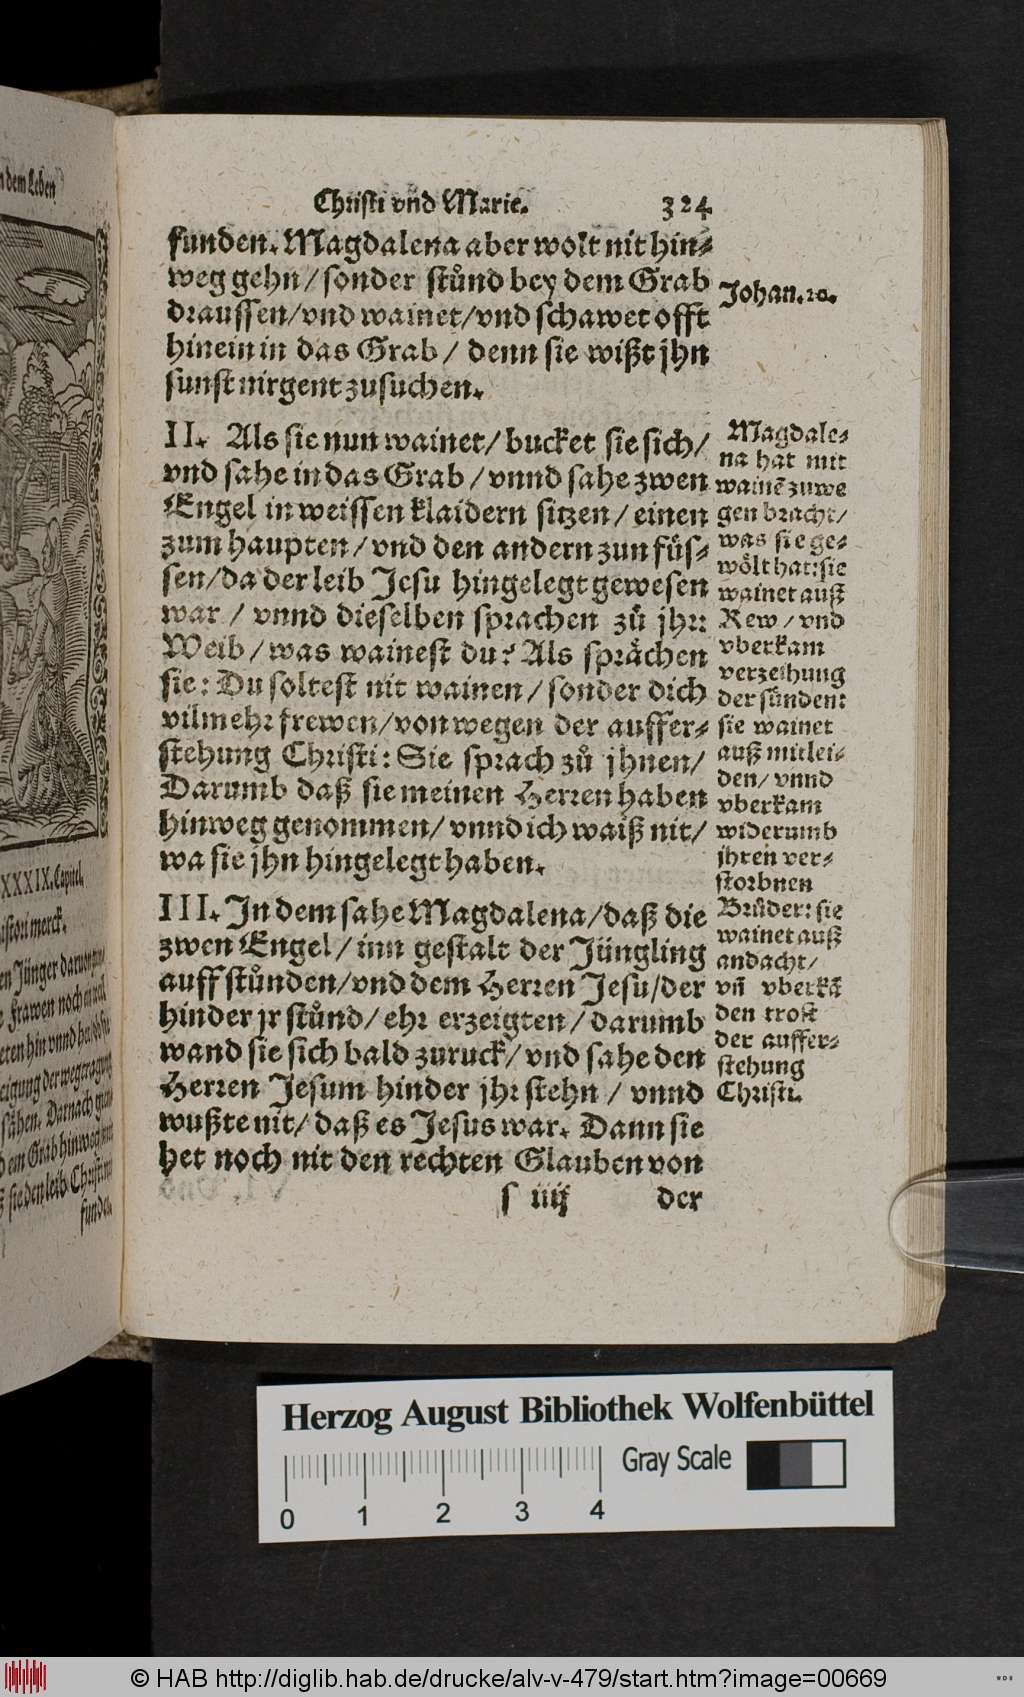 n dem Leben
XXXIX. Capitel.
istori merck.
en Jünger daruon
Frawen noch
eten hin vnnd
eigung der
sähen. Darnach
dem Grab hinweg
sie den leib Christi
funden.
Christi vnd Marie. 324
funden. Magdalena aber wolt nit hin⸗
weg gehn / sonder stůnd bey dem Grab
draussen/vnd wainet/vnd schawet offt
hinein in das Grab / denn sie wißt jhn
sunst nirgent zusuchen.
Johan. 20.
II. Als sie nun wainet/ bucket sie sich/
vnd sahe in das Grab / vnnd sahe zwen
Engel in weissen klaidern sitzen / einen
zum haupten / vnd den andern zun füs⸗
sen/da der leib Jesu hingelegt gewesen
war / vnnd dieselben sprachen zů jhr:
Weib / was wainest du? Als sprächen
sie: Du soltest nit wainen / sonder dich
vilmehr frewen/von wegen der auffer⸗
stehung Christi: Sie sprach zů jhnen/
Darumb daß sie meinen Herren haben
hinweg genommen/ vnnd ich waiß nit/
wa sie jhn hingelegt haben.
Magdale⸗
na hat mit
wainē zuwe
gen bracht/
was sie ge⸗
wölt hat: sie
wainet auß
Rew / vnd
vberkam
verzeihung
der sünden:
sie wainet
auß mitlei⸗
den/ vnnd
vberkam
widerumb
jhren ver⸗
storbnen
Brůder: sie
wainet auß
andacht/
vñ vberkā
den trost
der auffer⸗
stehung
Christi.
III. In dem sahe Magdalena/daß die
zwen Engel / inn gestalt der Jüngling
auffstůnden/vnd dem Herren Jesu/der
hinder jr stůnd / ehr erzeigten / darumb
wand sie sich bald zuruck/ vnd sahe den
Herren Jesum hinder jhr stehn / vnnd
wußte nit/ daß es Jesus war. Dann sie
het noch nit den rechten Glauben von
s iiij der
Herzog August Bibliothek Wolfenbüttel
Gray Scale
0 1 2 3 4
© HAB http://diglib.hab.de/drucke/alv-v-479/start.htm?image=00669